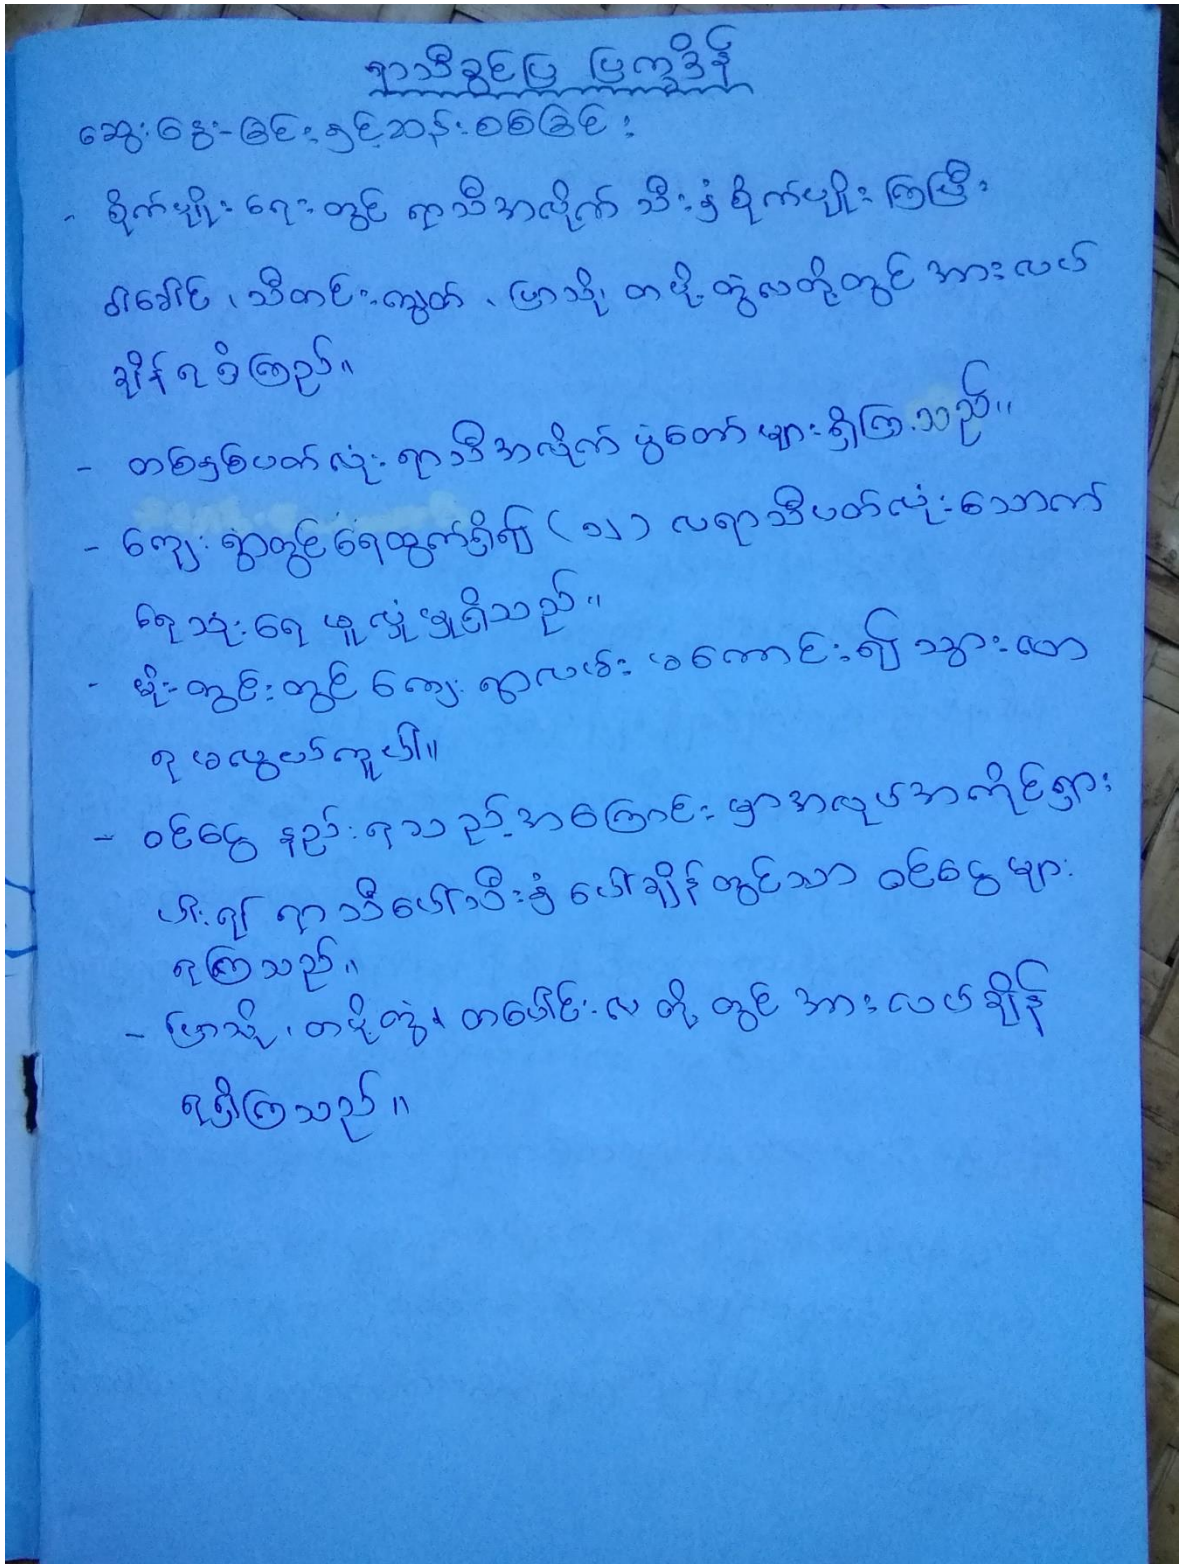 ရာသီခွင်ပြ ပြက္ခဒိန်
ဆွေးနွေးခြင်းနှင့်ဆန်းစစ်ခြင်း
- စိုက်ပျိုးရေးတွင် ရာသီအလိုက် သီးနှံစိုက်ပျိုးကြပြီး
ဝါခေါင်၊ သီတင်းကျွတ်၊ ပြာသို၊ တပို့တွဲလတို့တွင် အားလပ်
ချိန်ရှိကြသည်။
- တစ်နှစ်ပတ်လုံး ရာသီအလိုက် ပွဲတော်များရှိကြသည်။
- ကျေးရွာတွင်ရေထွက်ရှိ၍ (၁၂) လရာသီပတ်လုံးသောက်
ရေသုံးရေ ဖူလုံမှုရှိသည်။
- မိုးတွင်းတွင် ကျေးရွာလမ်း မကောင်း၍ သွားလာ
ရမလွယ်ကူပါ။
- ဝင်ငွေနည်းရသည့်အကြောင်းမှာအလုပ်အကိုင်ရှား
ပါး၍ ရာသီပေါ်သီးနှံ ပေါ်ချိန်တွင်သာ ဝင်ငွေများ
ရကြသည်။
- ပြာသို၊ တပို့တွဲ၊ တပေါင်းလတို့တွင် အားလပ်ချိန်
ရရှိကြသည်။